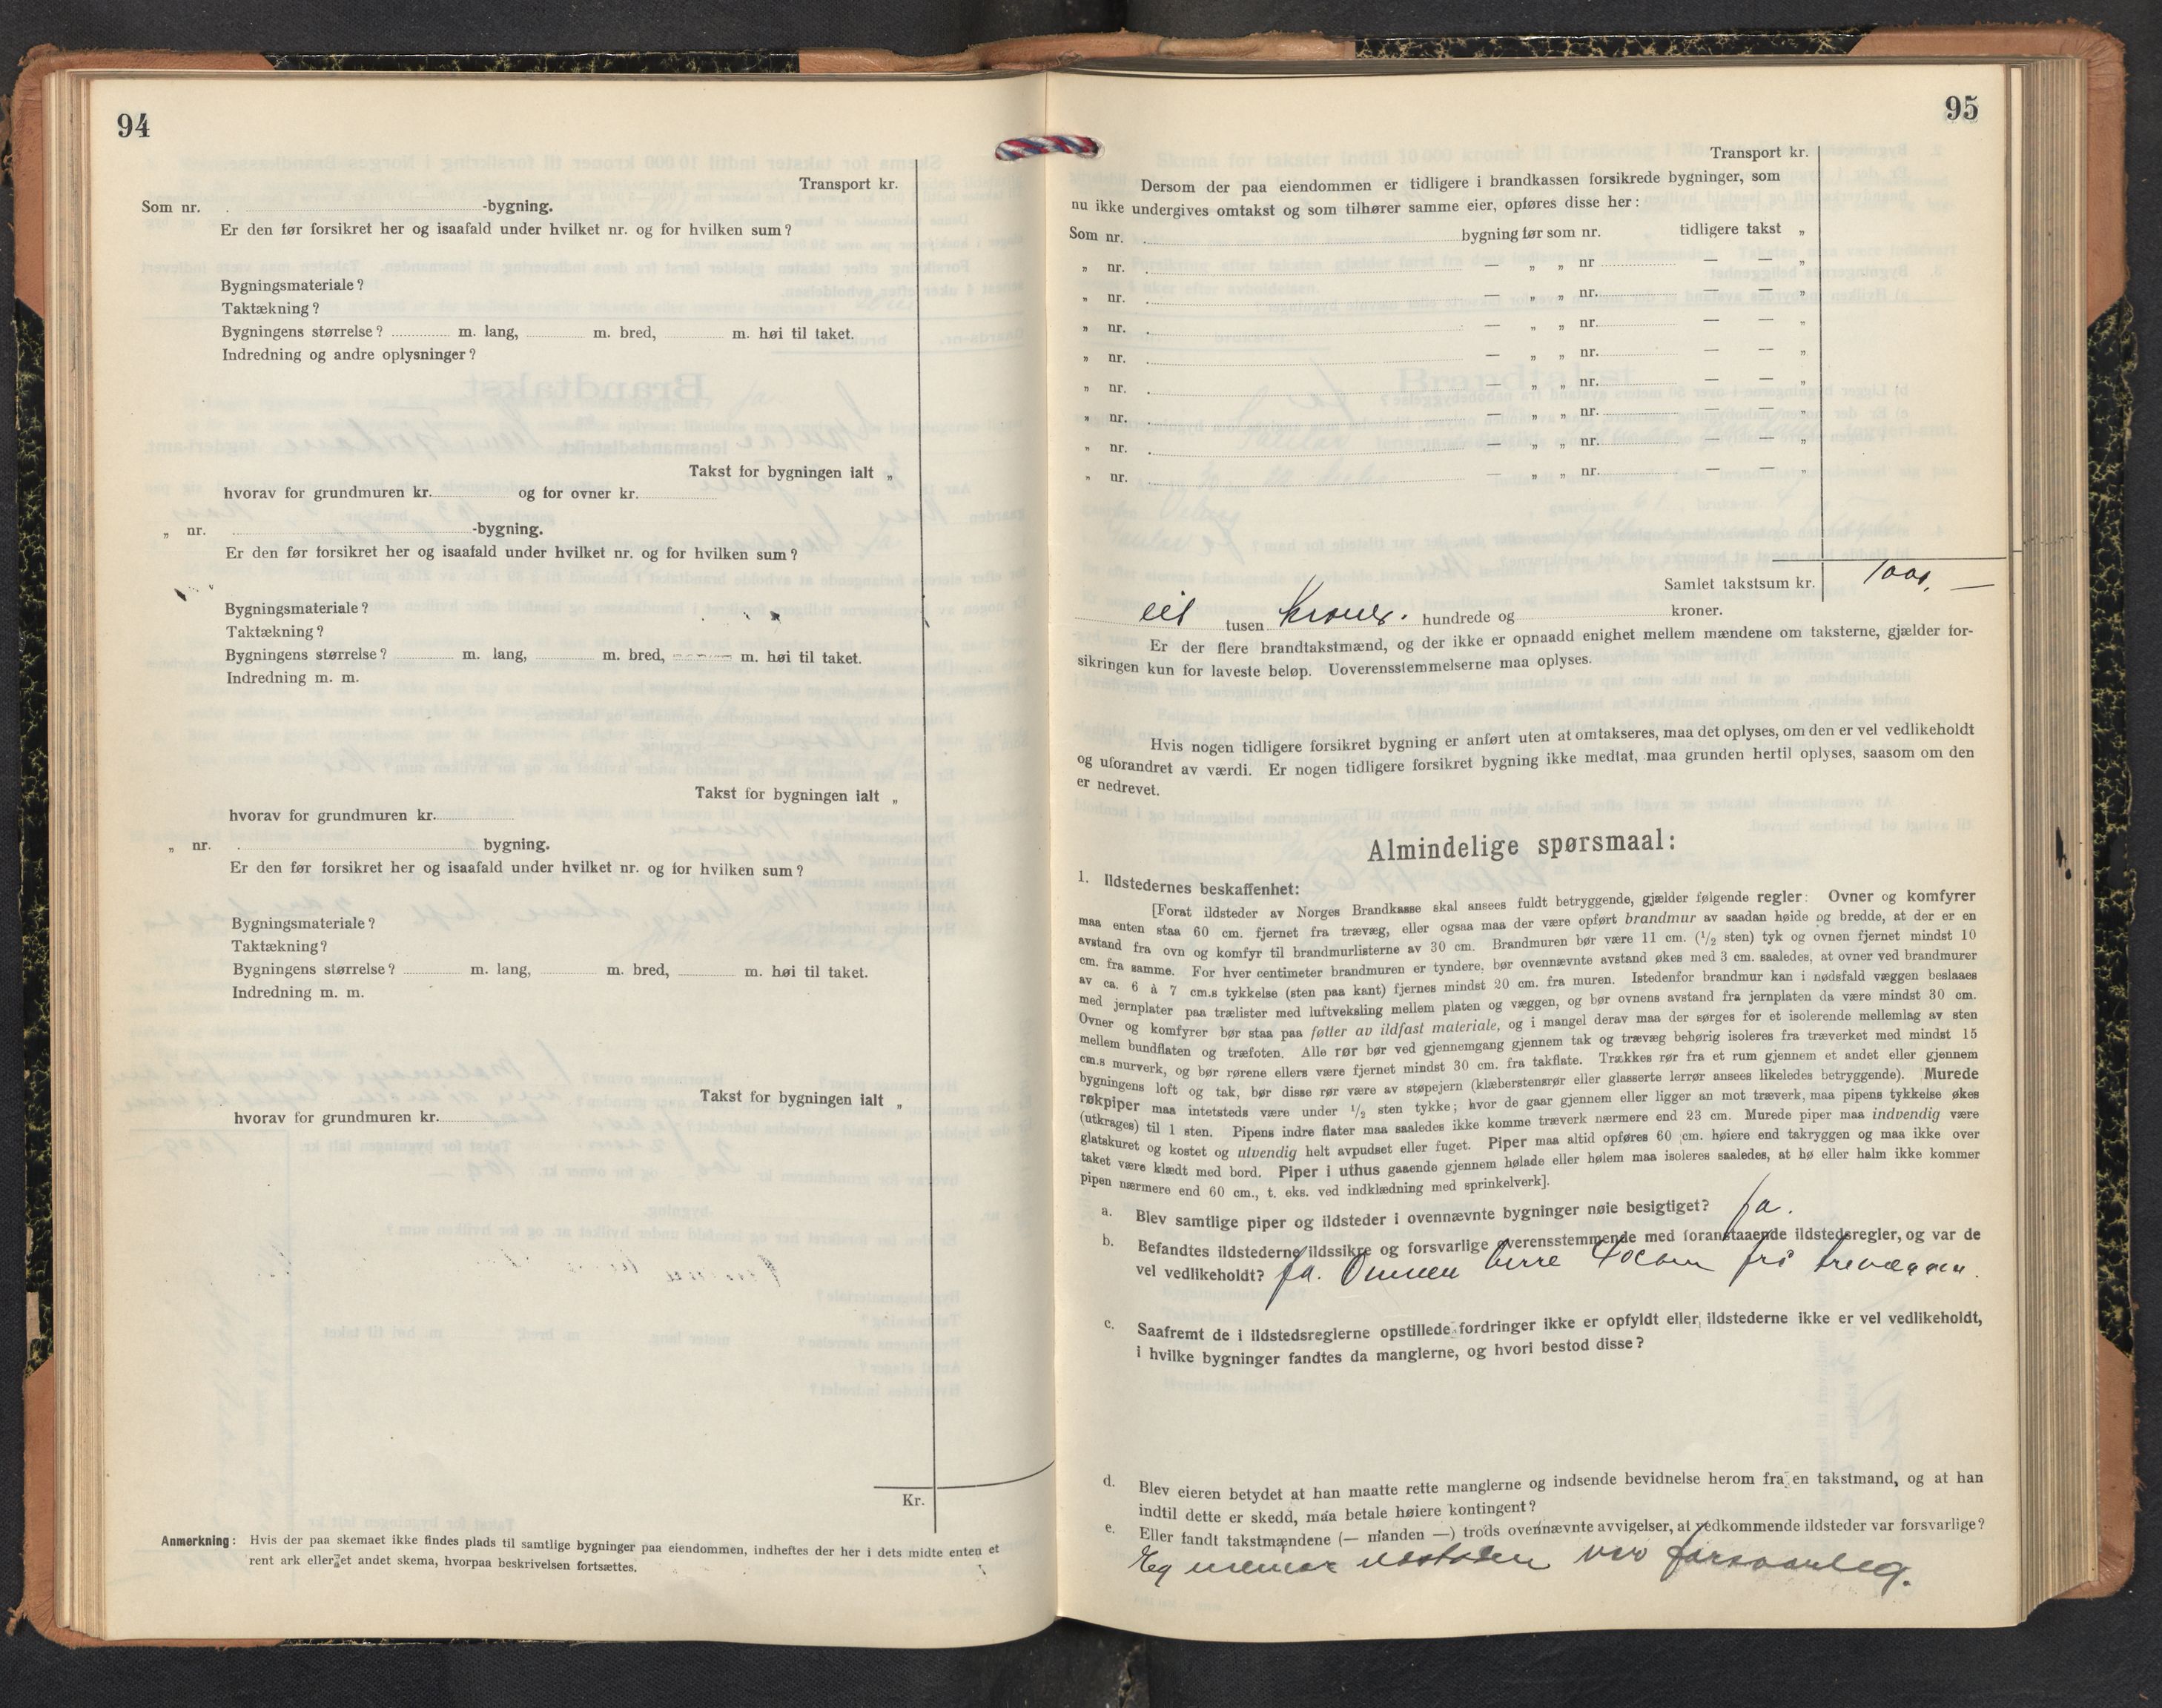 94
Transport kr.
Som nr. . -bygning.
Er den før forsikret her og isaafald under hvilket nr. og for hvilken sum?
Bygningsmateriale?
Taktækning?
Bygningens størrelse? m. lang, m. bred, m. høi til taket.
Indredning og andre oplysninger?
Takst for bygningen ialt „
hvorav for grundmuren kr. og for ovner kr.
„ nr. -bygning.
Er den før forsikret her og isaafald under hvilket nr. og for hvilken sum?
Bygningsmateriale?
Taktækning?
Bygningens størrelse? m. lang, m. bred, m. høi til taket.
Indredning m. m.
Takst for bygningen ialt „
hvorav for grundmuren kr.
„ nr. bygning.
Er den før forsikret her og isaafald under hvilket nr. og for hvilken sum?
Bygningsmateriale?
Taktækning?
Bygningens størrelse? m. lang, m. bred, m. høi til taket.
Indredning m. m.
Takst for bygningen ialt „
hvorav for grundmuren kr.
Kr.
Anmerkning: Hvis der paa skemaet ikke findes plads til samtlige bygninger paa eiendommen, indheftes der her i dets midte enten et
rent ark eller et andet skema, hvorpaa beskrivelsen fortsættes.
95
Transport kr.
Dersom der paa eiendommen er tidligere i brandkassen forsikrede bygninger, som
nu ikke undergives omtakst og som tilhører samme eier, opføres disse her:
Som nr. bygning før som nr. tidligere takst „
„ nr. — „ „ nr — — „
„ nr. — „ „ nr. — — „
„ nr. — „ „ nr. — — „
„ nr. — „ „ nr. — — „
„ nr. — „ „ nr. — — „
„ nr. — „ „ nr. — — „
„ nr. — „ „ nr. — — „
„ nr. — „ „ nr. — — „
Samlet takstsum kr. 1000,—
eit tusen Kroner. hundrede og kroner.
Er der flere brandtakstmænd, og der ikke er opnaadd enighet mellem mændene om taksterne, gjælder for-
sikringen kun for laveste beløp. Uoverensstemmelserne maa oplyses.
Hvis nogen tidligere forsikret bygning er anført uten at omtakseres, maa det oplyses, om den er vel vedlikeholdt
og uforandret av værdi. Er nogen tidligere forsikret bygning ikke medtat, maa grunden hertil oplyses, saasom om den
er nedrevet.
Almindelige spørsmaal:
1. Ildstedernes beskaffenhet:
[Forat ildsteder av Norges Brandkasse skal ansees fuldt betryggende, gjælder følgende regler: Ovner og komfyrer
maa enten staa 60 cm. fjernet fra trævæg, eller ogsaa maa der være opført brandmur av saadan høide og bredde, at der er en
avstand fra ovn og komfyr til brandmurlisterne av 30 cm. Brandmuren bør være 11 cm. (1/2 sten) tyk og ovnen fjernet mindst 10
cm. fra samme. For hver centimeter brandmuren er tyndere, bør ovennævnte avstand økes med 3 cm. saaledes, at ovner ved brandmurer
av ca. 6 à 7 cm.s tykkelse (sten paa kant) fjernes mindst 20 cm. fra muren. Istedenfor brandmur kan i nødsfald væggen beslaaes
med jernplater paa trælister med luftveksling mellem platen og væggen, og bør ovnens avstand fra jernplaten da være mindst 30 cm.
Ovner og komfyrer bør staa paa føtter av ildfast materiale, og i mangel derav maa der sørges for et isolerende mellemlag av sten
mellem bundflaten og træfoten. Alle rør bør ved gjennemgang gjennem tak og trævæg behørig isoleres fra træverket med mindst 15
cm.s murverk, og bør rørene ellers være fjernet mindst 30 cm. fra takflate. Trækkes rør fra et rum gjennem et andet eller gjennem
bygningens loft og tak, bør disse rør være av støpejern (klæberstensrør eller glasserte lerrør ansees likeledes betryggende). Murede
røkpiper maa intetsteds være under 1/2 sten tykke; hvor de gaar gjennem eller ligger an mot træverk, maa pipens tykkelse økes
(utkrages) til 1 sten. Pipens indre flater maa saaledes ikke komme træverk nærmere end 23 cm. Murede piper maa indvendig være
glatskuret og kostet og utvendig helt avpudset eller fuget. Piper maa altid opføres 60 cm. høiere end takryggen og maa ikke over
taket være klædt med bord. Piper i uthus gaaende gjennem hølade eller hølem maa isoleres saaledes, at hø eller halm ikke kommer
pipen nærmere end 60 cm., t. eks. ved indklædning med sprinkelverk].
a. Blev samtlige piper og ildsteder i ovennævnte bygninger nøie besigtiget? Ja.
b. Befandtes ildstederne ildssikre og forsvarlige overensstemmende med foranstaaende ildstedsregler, og var de
vel vedlikeholdt? Ja. Omnen frå treveggen.
c. Saafremt de i ildstedsreglerne opstillede fordringer ikke er opfyldt eller ildstederne ikke er vel vedlikeholdt,
i hvilke bygninger fandtes da manglerne, og hvori bestod disse?
d. Blev eieren betydet at han maatte rette manglerne og indsende bevidnelse herom fra en takstmand, og at han
indtil dette er skedd, maa betale høiere kontingent?
e. Eller fandt takstmændene (— manden —) trods ovennævnte avvigelser, at vedkommende ildsteder var forsvarlige?
Eg meiner eldstaden var forsvarleg.